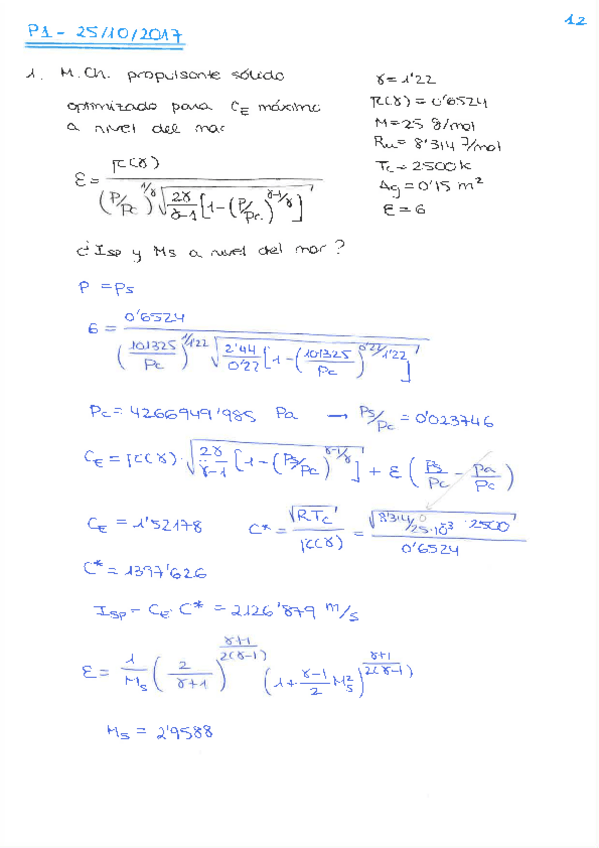 12
P1 - 25/10/2017
1. M.Ch. propulsante sólido
optimizado para C_E máximo
a nivel del mar
γ = 1'22
Γ(γ) = 0'6524
M = 25 g/mol
Ru = 8'314 J/mol
Tc = 2500 K
Ag = 0'15 m²
ε = 6
ε = Γ(γ) / ((P/Pc)^(1/γ) √(2γ/(γ-1) [1-(P/Pc)^(γ-1/γ)]))
¿Isp y Ms a nivel del mar?
P = Ps
6 = 0'6524 / ((101325/Pc)^(1/1'22) √(2'44/0'22 [1-(101325/Pc)^(0'22/1'22)]))
Pc = 4266949'985 Pa → Ps/Pc = 0'023746
C_E = Γ(γ) · √(2γ/(γ-1) [1-(Ps/Pc)^(γ-1/γ)]) + ε (Ps/Pc - Pa/Pc)
0
C_E = 1'52178 C* = √(RTc) / Γ(γ) = √(8'314/25·10⁻³ · 2500) / 0'6524
C* = 1397'626
Isp = C_E · C* = 2126'879 m/s
ε = 1/Ms (2/(γ+1))^((γ+1)/(2(γ-1))) (1 + (γ-1)/2 Ms²)^((γ+1)/(2(γ-1)))
Ms = 2'9588